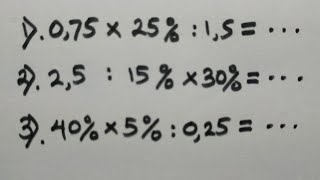 1). 0,75 × 25% : 1,5 = ...
2). 2,5 : 15% × 30% = ...
3). 40% × 5% : 0,25 = ...